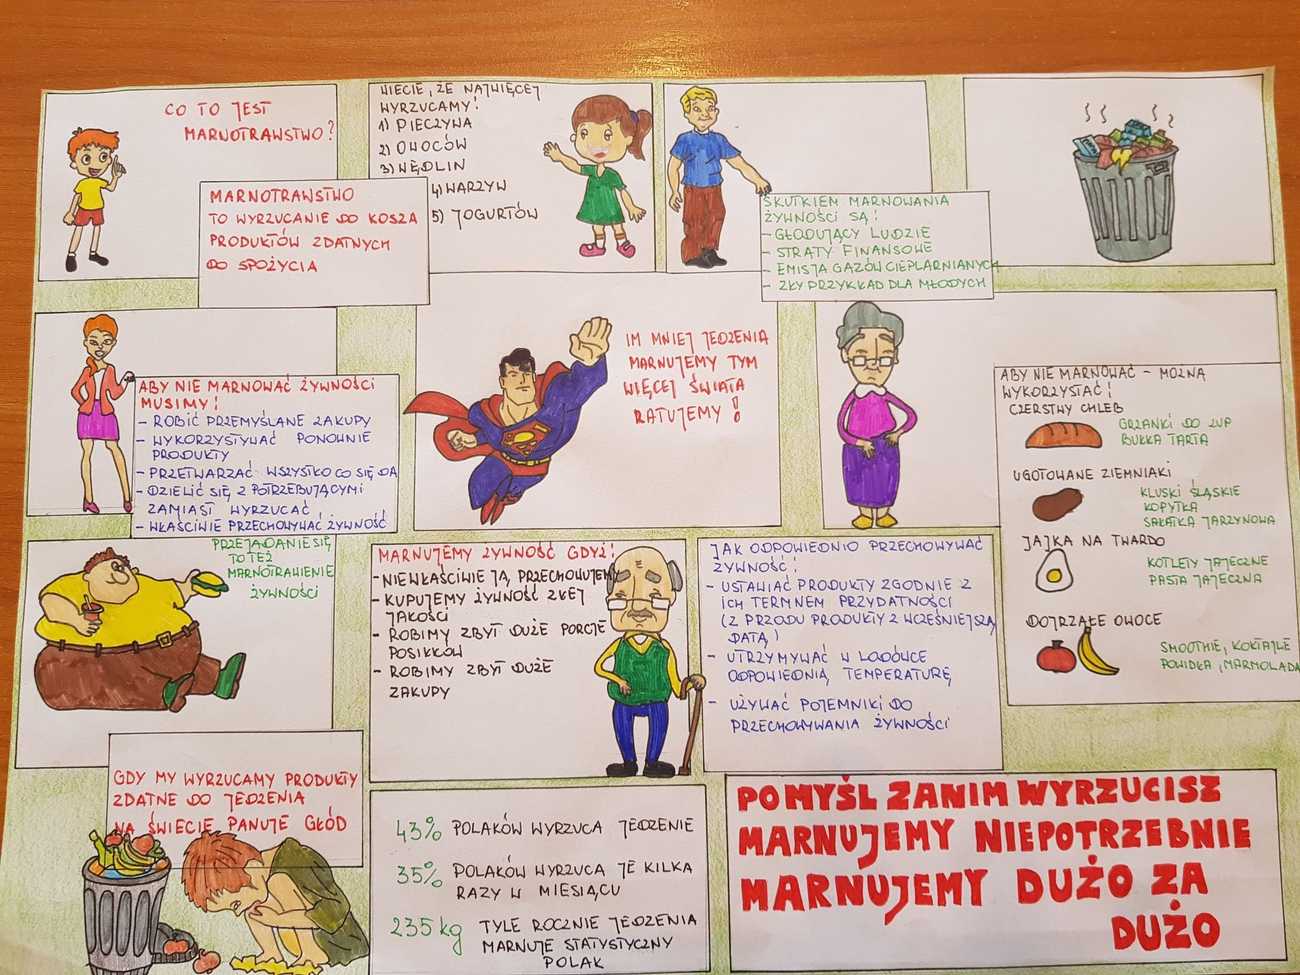 CO TO JEST
MARNOTRAWSTWO?
MARNOTRAWSTWO
TO WYRZUCANIE DO KOSZA
PRODUKTÓW ZDATNYCH
DO SPOŻYCIA
WIECIE, ŻE NAJWIĘCEJ
WYRZUCAMY!
1) PIECZYWA
2) OWOCÓW
3) WĘDLIN
4) WARZYW
5) JOGURTÓW
SKUTKIEM MARNOWANIA
ŻYWNOŚCI SĄ!
- GŁODUJĄCY LUDZIE
- STRATY FINANSOWE
- EMISJA GAZÓW CIEPLARNIANYCH
- ZŁY PRZYKŁAD DLA MŁODYCH
ABY NIE MARNOWAĆ ŻYWNOŚCI
MUSIMY!
- ROBIĆ PRZEMYŚLANE ZAKUPY
- WYKORZYSTYWAĆ PONOWNIE
PRODUKTY
- PRZETWARZAĆ WSZYSTKO CO SIĘ DA
- DZIELIĆ SIĘ Z POTRZEBUJĄCYMI
ZAMIAST WYRZUCAĆ
- WŁAŚCIWIE PRZECHOWYWAĆ ŻYWNOŚĆ
S
IM MNIEJ JEDZENIA
MARNUJEMY TYM
WIĘCEJ ŚWIATA
RATUJEMY!
ABY NIE MARNOWAĆ - MOŻNA
WYKORZYSTAĆ!
CZERSTWY CHLEB
GRZANKI DO ZUP
BUŁKA TARTA
UGOTOWANE ZIEMNIAKI
KLUSKI ŚLĄSKIE
KOPYTKA
SAŁATKA JARZYNOWA
JAJKA NA TWARDO
KOTLETY JAJECZNE
PASTA JAJECZNA
DOJRZAŁE OWOCE
SMOOTHIE, KOKTAJLE
POWIDŁA, MARMOLADA
PRZEJADANIE SIĘ
TO TEŻ
MARNOTRAWIENIE
ŻYWNOŚCI
MARNUJEMY ŻYWNOŚĆ GDYŻ!
- NIEWŁAŚCIWIE JĄ PRZECHOWUJEMY
- KUPUJEMY ŻYWNOŚĆ ZŁEJ
JAKOŚCI
- ROBIMY ZBYT DUŻE PORCJE
POSIŁKÓW
- ROBIMY ZBYT DUŻE
ZAKUPY
JAK ODPOWIEDNIO PRZECHOWYWAĆ
ŻYWNOŚĆ!
- USTAWIAĆ PRODUKTY ZGODNIE Z
ICH TERMNEM PRZYDATNOŚCI
(Z PRZODU PRODUKTY Z WCZEŚNIEJSZĄ
DATĄ)
- UTRZYMYWAĆ W LODÓWCE
ODPOWIEDNIĄ TEMPERATURĘ
- UŻYWAĆ POJEMNIKI DO
PRZECHOWYWANIA ŻYWNOŚCI
GDY MY WYRZUCAMY PRODUKTY
ZDATNE DO JEDZENIA
NA ŚWIECIE PANUJE GŁÓD
43% POLAKÓW WYRZUCA JEDZENIE
35% POLAKÓW WYRZUCA JE KILKA
RAZY W MIESIĄCU
235 kg TYLE ROCZNIE JEDZENIA
MARNUJE STATYSTYCZNY
POLAK
POMYŚL ZANIM WYRZUCISZ
MARNUJEMY NIEPOTRZEBNIE
MARNUJEMY DUŻO ZA
DUŻO